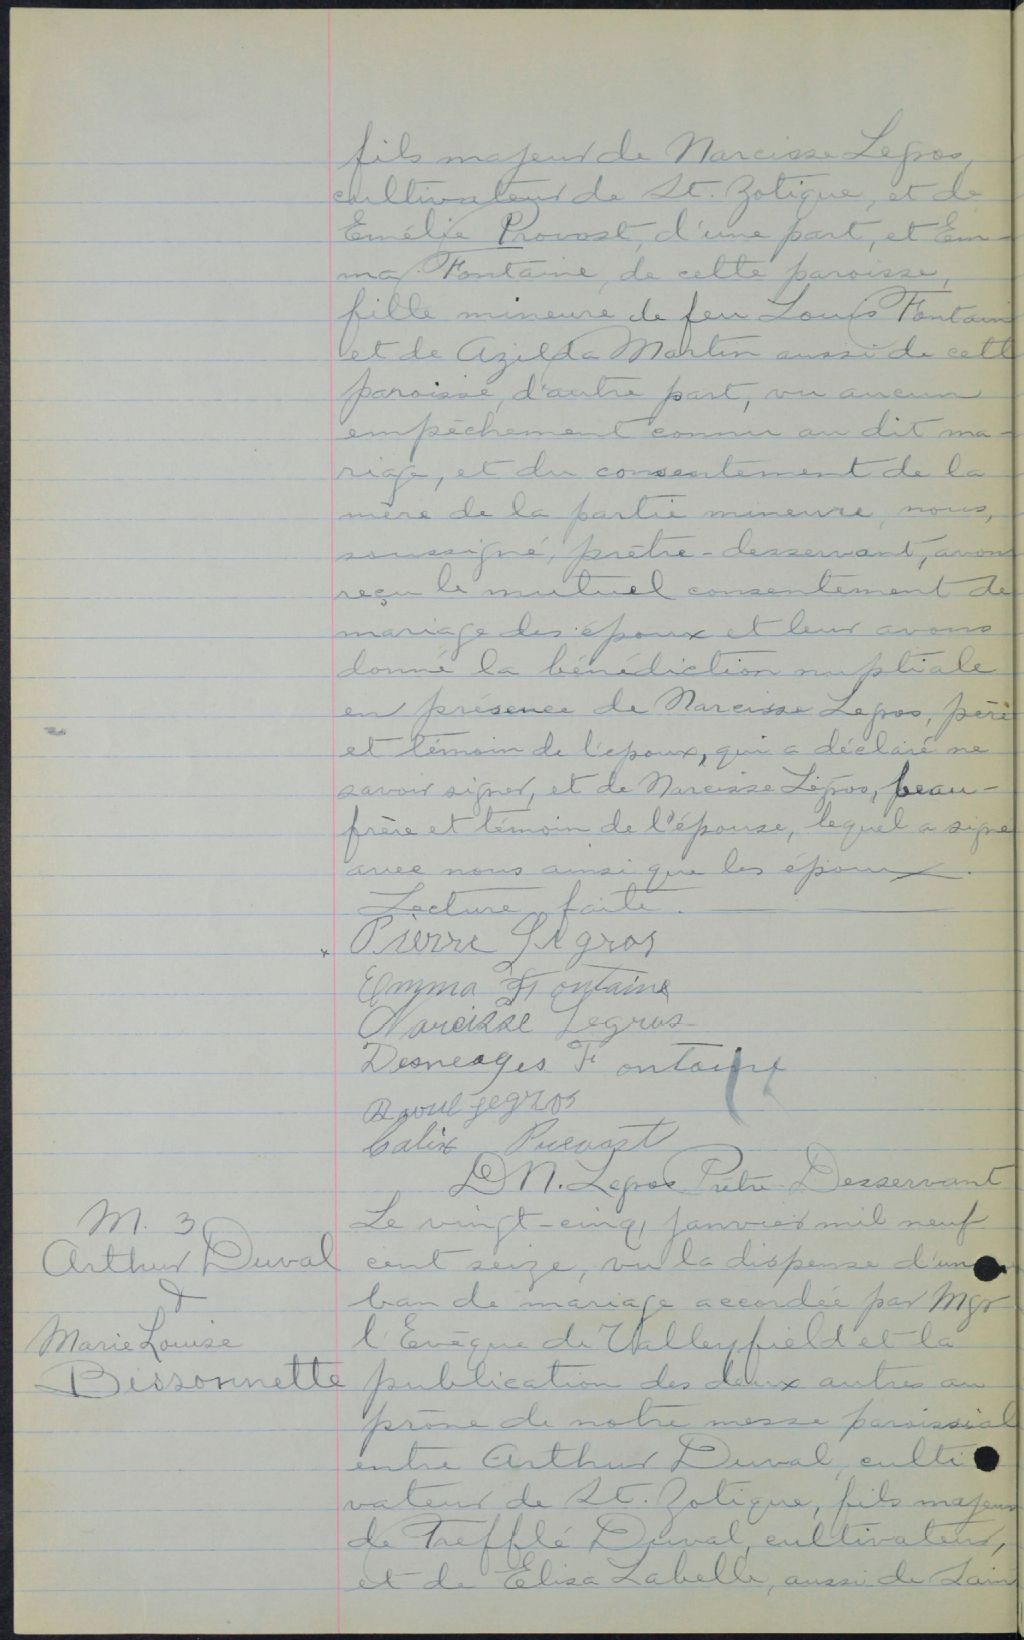 fils majeur de Narcisse Legros,
cultivateur de St. Zotique, et de
Emélie Provost, d'une part, et Em-
ma Fontaine, de cette paroisse,
fille mineure de feu Louis Fontain
et de Azilda Martin aussi de cett
paroisse, d'autre part, vu aucun
empêchement connu au dit ma-
riage, et du consentement de la
mère de la partie mineure, nous,
soussigné, prêtre-desservant, avons
reçu le mutuel consentement de
mariage des époux et leur avons
donné la bénédiction nuptiale
en présence de Narcisse Legros, père
et témoin de l'epoux, qui a déclaré ne
savoir signer, et de Narcisse Légros, beau-
frère et témoin de l'épouse, lequel a signé
avec nous ainsi que les époux.
Lecture faite.
x Pierre Legros
Emma Fontaine
Narcisse Legros
Desneages Fontaine
Raoul Legros
Calix Prevost
D N. Legros Prêtre Desservant
M. 3
Arthur Duval
&
Marie Louise
Bissonnette
Le vingt-cinq, janvier mil neuf
cent seize, vu la dispense d'un
ban de mariage accordée par Mgr
l'Evêque de Valleyfield et la
publication des deux autres au
prône de notre messe paroissial
entre Arthur Duval, culti
vateur de St. Zotique, fils majeur
de Trefflé Duval, cultivateur,
et de Elisa Labelle, aussi de Sain